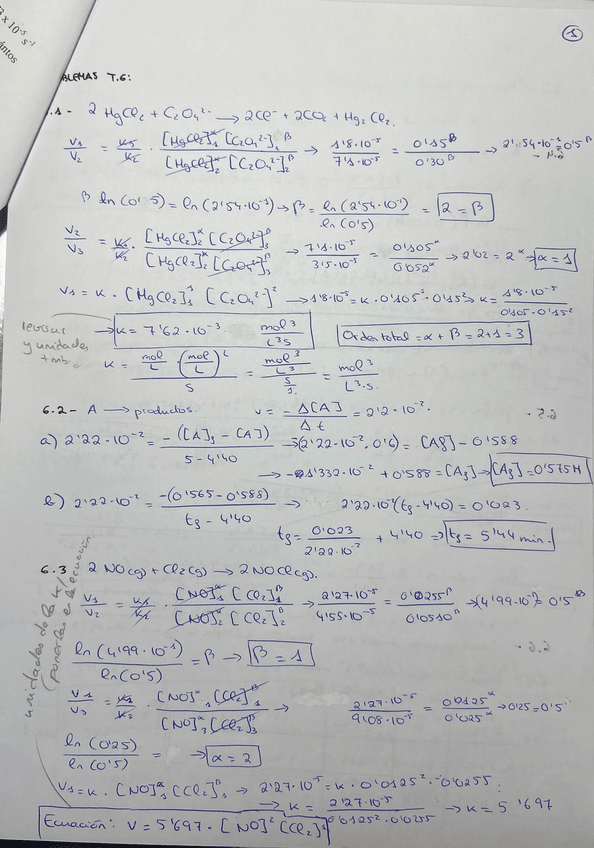 3 x 10⁻⁵
s⁻¹
ntos
1
BLEMAS T.6:
.1- 2 HgCl₂ + C₂O₄²⁻ → 2Cl⁻ + 2CO₂ + Hg₂Cl₂.
V₁/V₂ = K₁/K₂ · [HgCl₂]₁^α [C₂O₄²⁻]₁^β / [HgCl₂]₂^α [C₂O₄²⁻]₂^β → 1'8·10⁻⁵ / 7'1·10⁻⁵ = 0'15^β / 0'30^β → 2'54·10⁻¹ = 0'5^β
β ln(0'5) = ln(2'54·10⁻¹) → β = ln(2'54·10⁻¹) / ln(0'5) = 2 = β
V₂/V₃ = K₂/K₃ · [HgCl₂]₂^α [C₂O₄²⁻]₂^β / [HgCl₂]₃^α [C₂O₄²⁻]₃^β → 7'1·10⁻⁵ / 3'5·10⁻⁵ = 0'105^α / 0'052^α → 2'02 = 2^α → α = 1
V₁ = K · [HgCl₂]₁¹ [C₂O₄²⁻]² → 1'8·10⁻⁵ = K · 0'105¹ · 0'15² → K = 1'8·10⁻⁵ / 0'105·0'15²
revisar
y unidades
tmb.
→ K = 7'62·10⁻³ mol³/L³s
Orden total = α + β = 2+1 = 3
K = mol/L · (mol/L)² / S = mol³/L³ / S/1 = mol³/L³·s.
6.2- A → productos. V = -Δ[A]/Δt = 2'2·10⁻².
a) 2'22·10⁻² = -([A]f - [A]) / 5-4'40 → (2'22·10⁻²·0'6) = [Af] - 0'588
→ -1'332·10⁻² + 0'588 = [Af] → [Af] = 0'575M
b) 2'22·10⁻² = -(0'565-0'588) / tf - 4'40 → 2'22·10⁻²(tf-4'40) = 0'023.
tf = 0'023 / 2'22·10⁻² + 4'40 ⇒ tf = 5'44 min.
6.3 2 NO(g) + Cl₂(g) → 2NOCl(g).
V₁/V₂ = K₁/K₂ · [NO]₁^α [Cl₂]₁^β / [NO]₂^α [Cl₂]₂^β → 2'27·10⁻⁵ / 4'55·10⁻⁵ = 0'0255^β / 0'0510^β → (4'99·10⁻¹) = 0'5^β
ln(4'99·10⁻¹) / ln(0'5) = β → β = 1
V₁/V₃ = K₁/K₃ · [NO]₁^α [Cl₂]₁^β / [NO]₃^α [Cl₂]₃^β → 2'27·10⁻⁵ / 9'08·10⁻⁵ = 0'0125^α / 0'025^α → 0'25 = 0'5
ln(0'25) / ln(0'5) = → α = 2
V₁ = K · [NO]₁^α [Cl₂]₁^β → 2'27·10⁻⁵ = K · 0'0125² · 0'0255
→ K = 2'27·10⁻⁵ / 0'0125²·0'0255 → K = 5'697
unidades de la K/
ponerlas en la ecuación
Ecuación: V = 5'697 · [NO]² [Cl₂]¹